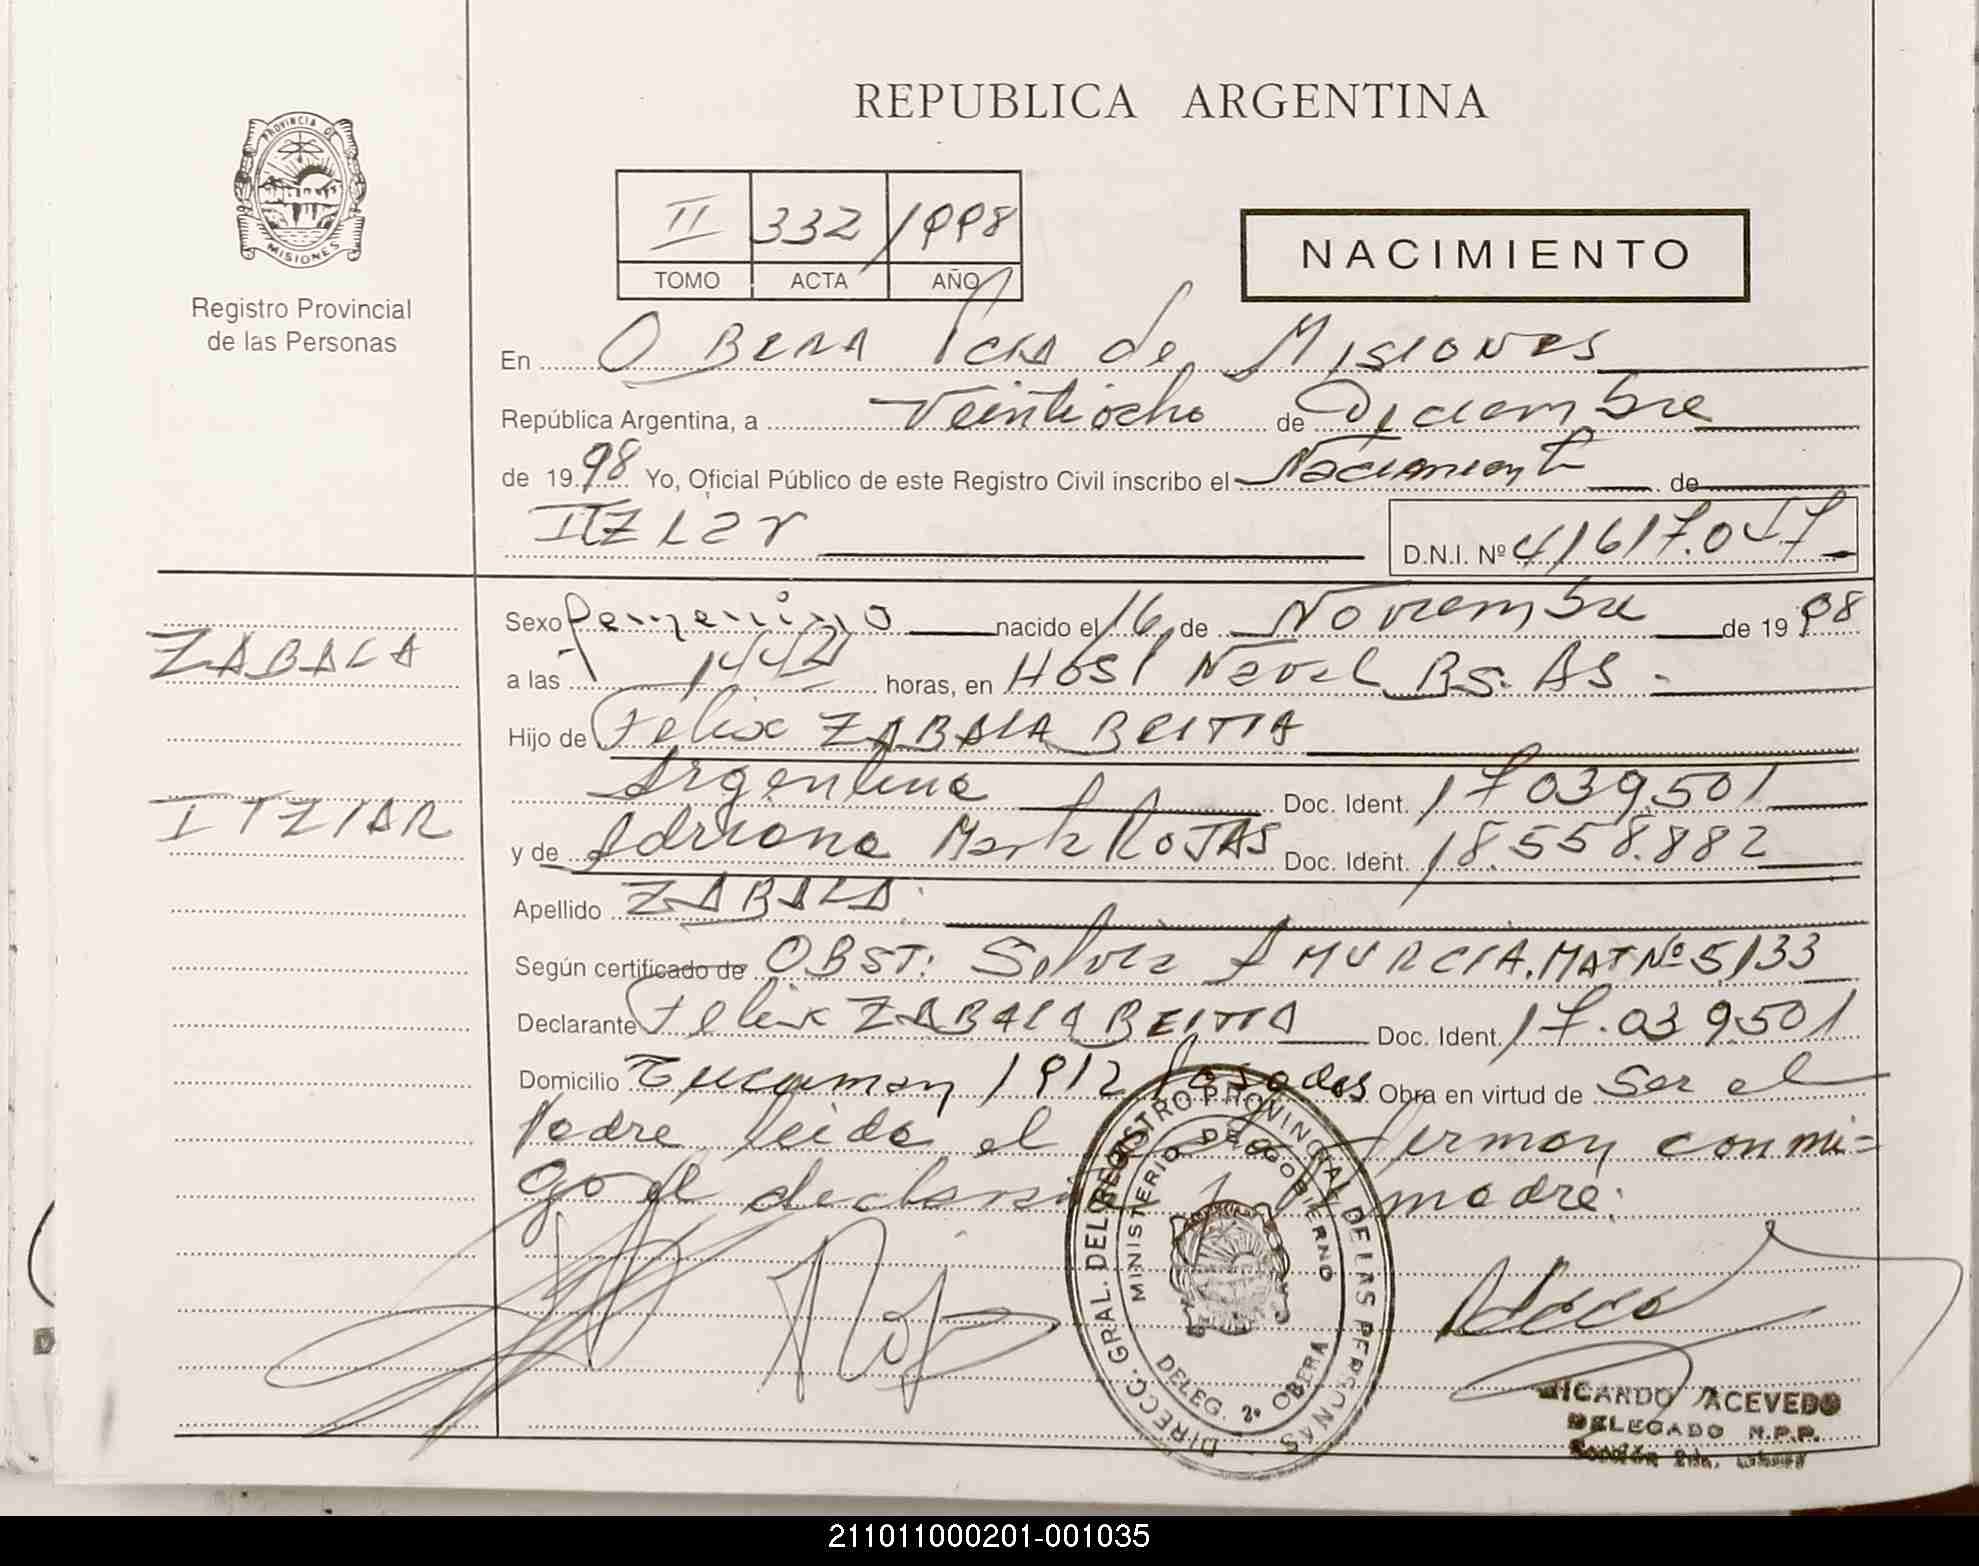 REPUBLICA ARGENTINA
PROVINCIA DE MISIONES
Registro Provincial
de las Personas
II 332 /1998
TOMO ACTA AÑO
NACIMIENTO
En OBERA Pcia de MISIONES
República Argentina, a Veintiocho de Diciembre
de 1998 Yo, Oficial Público de este Registro Civil inscribo el Nacimiento de
ITZIar D.N.I. Nº 41617.057
ZABALA
ITZIAR
Sexo femenino nacido el 16 de Noviembre de 1998
a las 1442 horas, en Hosl Naval Bs. As.
Hijo de Felix ZABALA BEITIA
Argentino Doc. Ident. 17039.501
y de Adriana ROJAS Doc. Ident. 18.558.882
Apellido ZABALA
Según certificado de OBST: Silvia A MURCIA. MAT Nº 5133
Declarante Felix ZABALA BEITIA Doc. Ident. 17.039501
Domicilio Tucuman 1912 Posadas Obra en virtud de Ser el
Padre leida el firman conmi=
go el declarante y la madre.
DIRECC. GRAL. DEL REGISTRO PROVINCIAL DE LAS PERSONAS
MINISTERIO DE GOBIERNO
DELEG. 2º OBERA
RICARDO ACEVEDO
DELEGADO N.P.P.
211011000201-001035